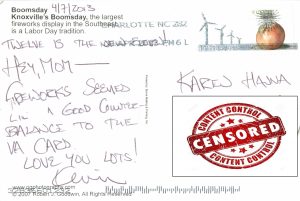 Boomsday 4/7/2013
Knoxville's Boomsday, the largest
fireworks display in the Southeast,
is a Labor Day tradition.
CHARLOTTE NC 282
TWELVE IS THE
HEY, MOM—
FIREWORKS SEEMED
A GOOD COUNTER-
BALANCE TO THE
VA CARD
LOVE YOU LOTS!
Kevin
KAREN HANNA
CONTENT CONTROL
CENSORED
CONTENT CONTROL
© 2007 Robert J. Goodwin. All rights reserved.